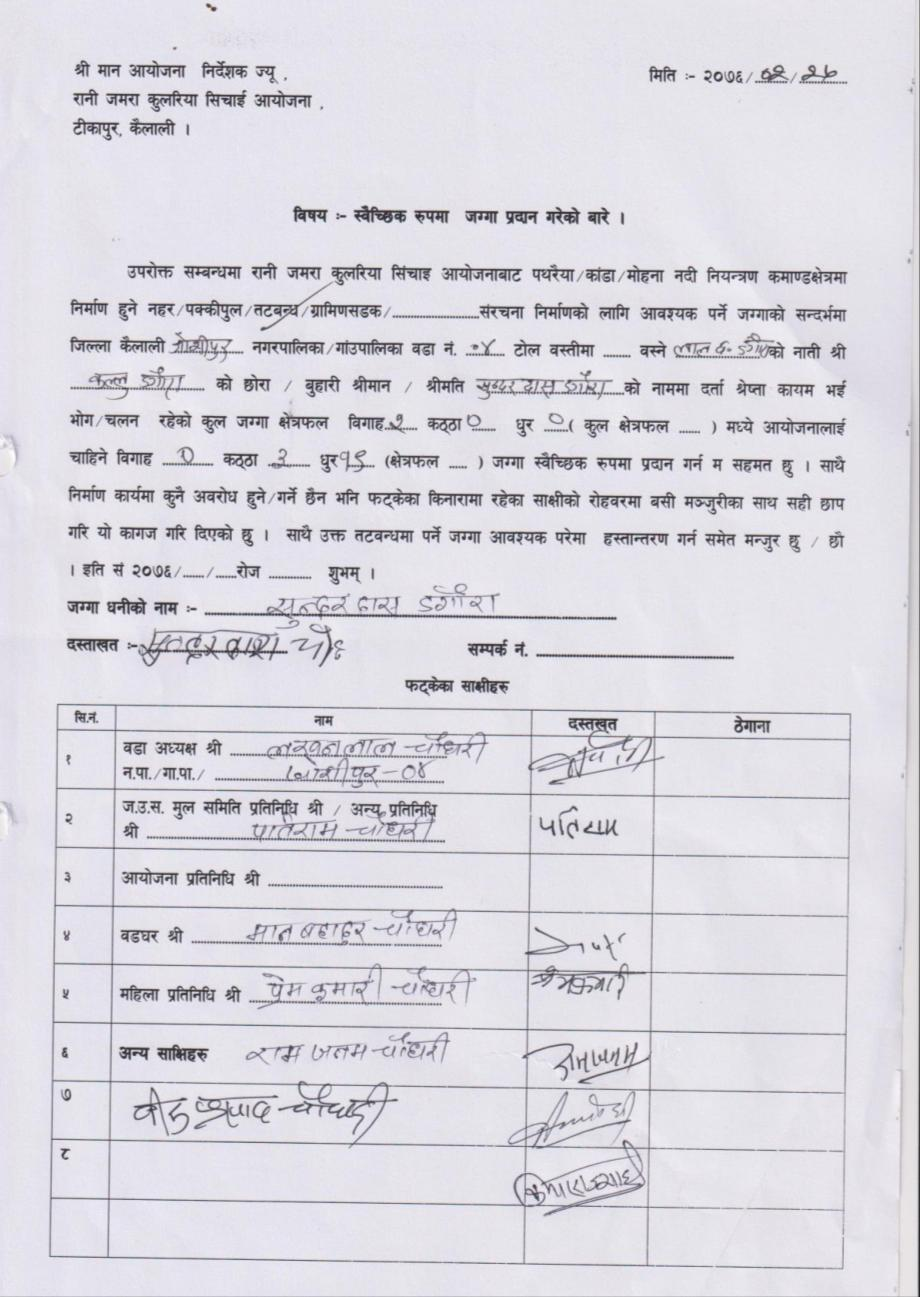 श्री मान आयोजना निर्देशक ज्यू , मिति :- २०७६/०२/२८
रानी जमरा कुलरिया सिचाई आयोजना ,
टीकापुर, कैलाली ।
विषय :- स्वैच्छिक रुपमा जग्गा प्रदान गरेको बारे ।
उपरोक्त सम्बन्धमा रानी जमरा कुलरिया सिंचाइ आयोजनाबाट पथरैया/कांडा/मोहना नदी नियन्त्रण कमाण्डक्षेत्रमा
निर्माण हुने नहर/पक्कीपुल/तटबन्ध/ग्रामिणसडक/......................संरचना निर्माणको लागि आवश्यक पर्ने जग्गाको सन्दर्भमा
जिल्ला कैलाली जोशीपुर नगरपालिका/गांउपालिका वडा नं. ०४ टोल वस्तीमा ........ वस्ने लाल ब. डगौराको नाती श्री
कल्लु डगौरा को छोरा / बुहारी श्रीमान / श्रीमति सुन्दर दास डगौरा को नाममा दर्ता श्रेप्ता कायम भई
भोग/चलन रहेको कुल जग्गा क्षेत्रफल विगाह २ कठ्ठा ० धुर ० ( कुल क्षेत्रफल ...... ) मध्ये आयोजनालाई
चाहिने विगाह ० कठ्ठा ३ धुर १९ (क्षेत्रफल ..... ) जग्गा स्वैच्छिक रुपमा प्रदान गर्न म सहमत छु । साथै
निर्माण कार्यमा कुनै अवरोध हुने/गर्ने छैन भनि फट्केका किनारामा रहेका साक्षीको रोहवरमा बसी मञ्जुरीका साथ सही छाप
गरि यो कागज गरि दिएको छु । साथै उक्त तटवन्धमा पर्ने जग्गा आवश्यक परेमा हस्तान्तरण गर्न समेत मन्जुर छु / छौ
। इति सं २०७६/....../......रोज ............ शुभम् ।
जग्गा धनीको नाम :- सुन्दर दास डगौरा
दस्ताखत :- सुन्दर दास चौ सम्पर्क नं. ..........................................
फट्केका साक्षीहरु
सि.नं. नाम दस्तखत ठेगाना
१ वडा अध्यक्ष श्री लखनलाल चौधरी
न.पा./गा.पा./ जोशीपुर-०४
२ ज.उ.स. मुल समिति प्रतिनिधि श्री / अन्य प्रतिनिधि
श्री पातिराम चौधरी पतिराम
३ आयोजना प्रतिनिधि श्री ..........................................
४ वडघर श्री मान बहादुर चौधरी
५ महिला प्रतिनिधि श्री प्रेम कुमारी चौधरी
६ अन्य साक्षिहरु राम जनम चौधरी रामजनम
७ चौधरी
८